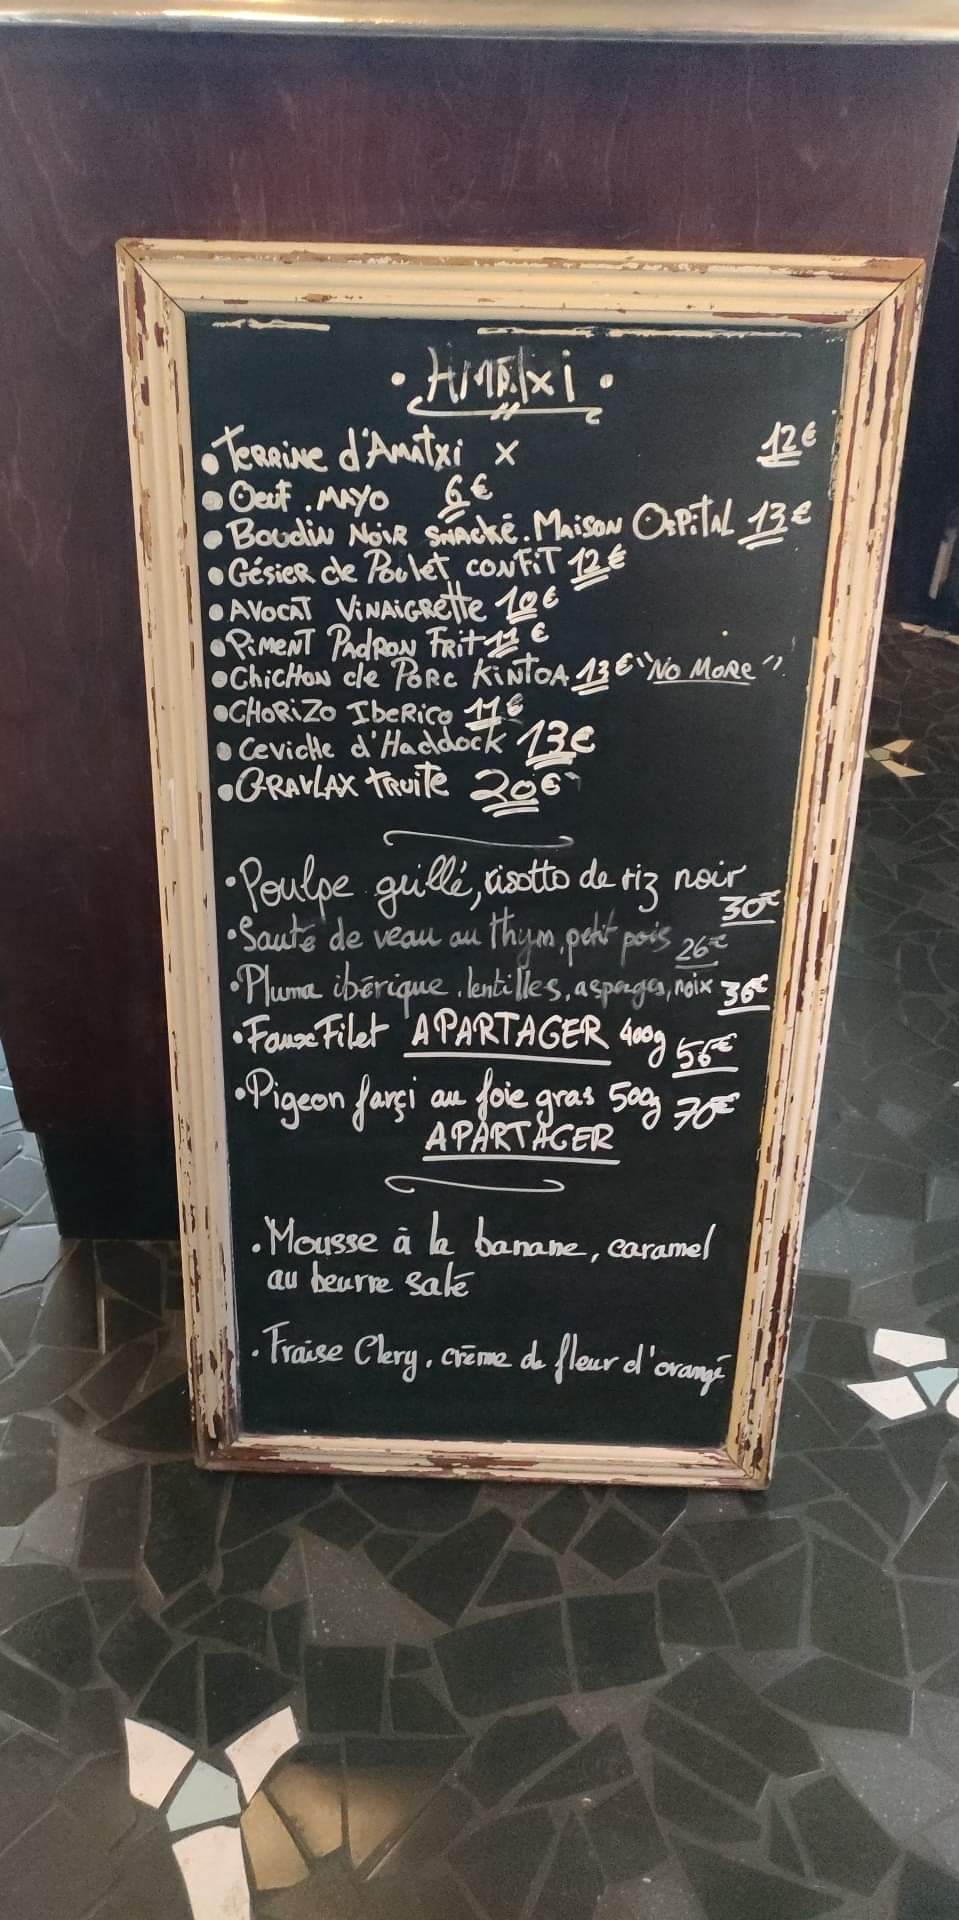 · AMATxi ·
• Terrine d'Amatxi x 12€
• Oeuf . Mayo 6€
• Boudin Noir snacké. Maison Ospital 13€
• Gésier de Poulet confit 12€
• Avocat Vinaigrette 10€
• Piment Padron Frit 11€
• Chichon de Porc Kintoa 13€ "No More"
• Chorizo Iberico 11€
• Ceviche d'Haddock 13€
• Gravlax truite 20€
• Poulpe grillé, risotto de riz noir
30€
• Sauté de veau au thym, petit pois 26€
• Pluma ibérique, lentilles, asperges, noix 36€
• Faux Filet A PARTAGER 400g 56€
• Pigeon farçi au foie gras 500g 70€
A PARTAGER
. Mousse à la banane, caramel
au beurre salé
. Fraise Clery, crème de fleur d'orangé